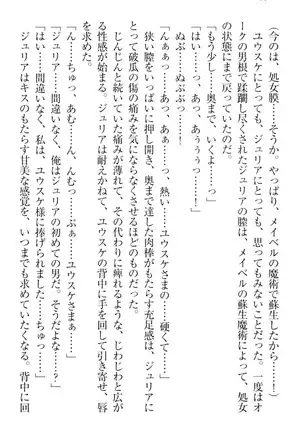 （今のは、処女膜……そうか。やっぱり、メイベルの魔術で蘇生したから……！）
ユウスケにとっても、ジュリアにとっても、思ってもみないことだった。一度はオ
ークの男根で蹂躙し尽くされたジュリアの膣は、メイベルの蘇生魔術によって、処女
の状態にまで戻っていたのだ。
「もう少し……奥まで、いくよ……」
「はい……っ、あっ、あぅぅっ……！」
ぬぷ……ぬぷぷっ……。
「んぁぁっ……あぅっ、熱い……ユウスケさまの……硬くて……」
狭い膣をいっぱいに押し開き、奥まで達した肉棒がもたらす充足感は、ジュリアに
とって破瓜の傷の痛みを気にならなくさせるほどのものだった。
じんじんと続いていた痛みが薄れて、その代わりに痺れるような、じわじわと広が
る性感が始まる。ジュリアは耐えかねて、ユウスケの背中に手を回して引き寄せ、唇
を求めた。
「ん……ちゅっ、あむ……ん、んむっ……ぷぁ……ユウスケさまぁ……」
「ジュリア……間違いなく、俺はジュリアの初めての男だ。そうだよな……？」
「はい……間違いなく、私は、ユウスケ様に捧げられました……ちゅっ……」
ジュリアはキスのもたらす甘美な感覚を、いつまでも求めていたくなる。背中に回